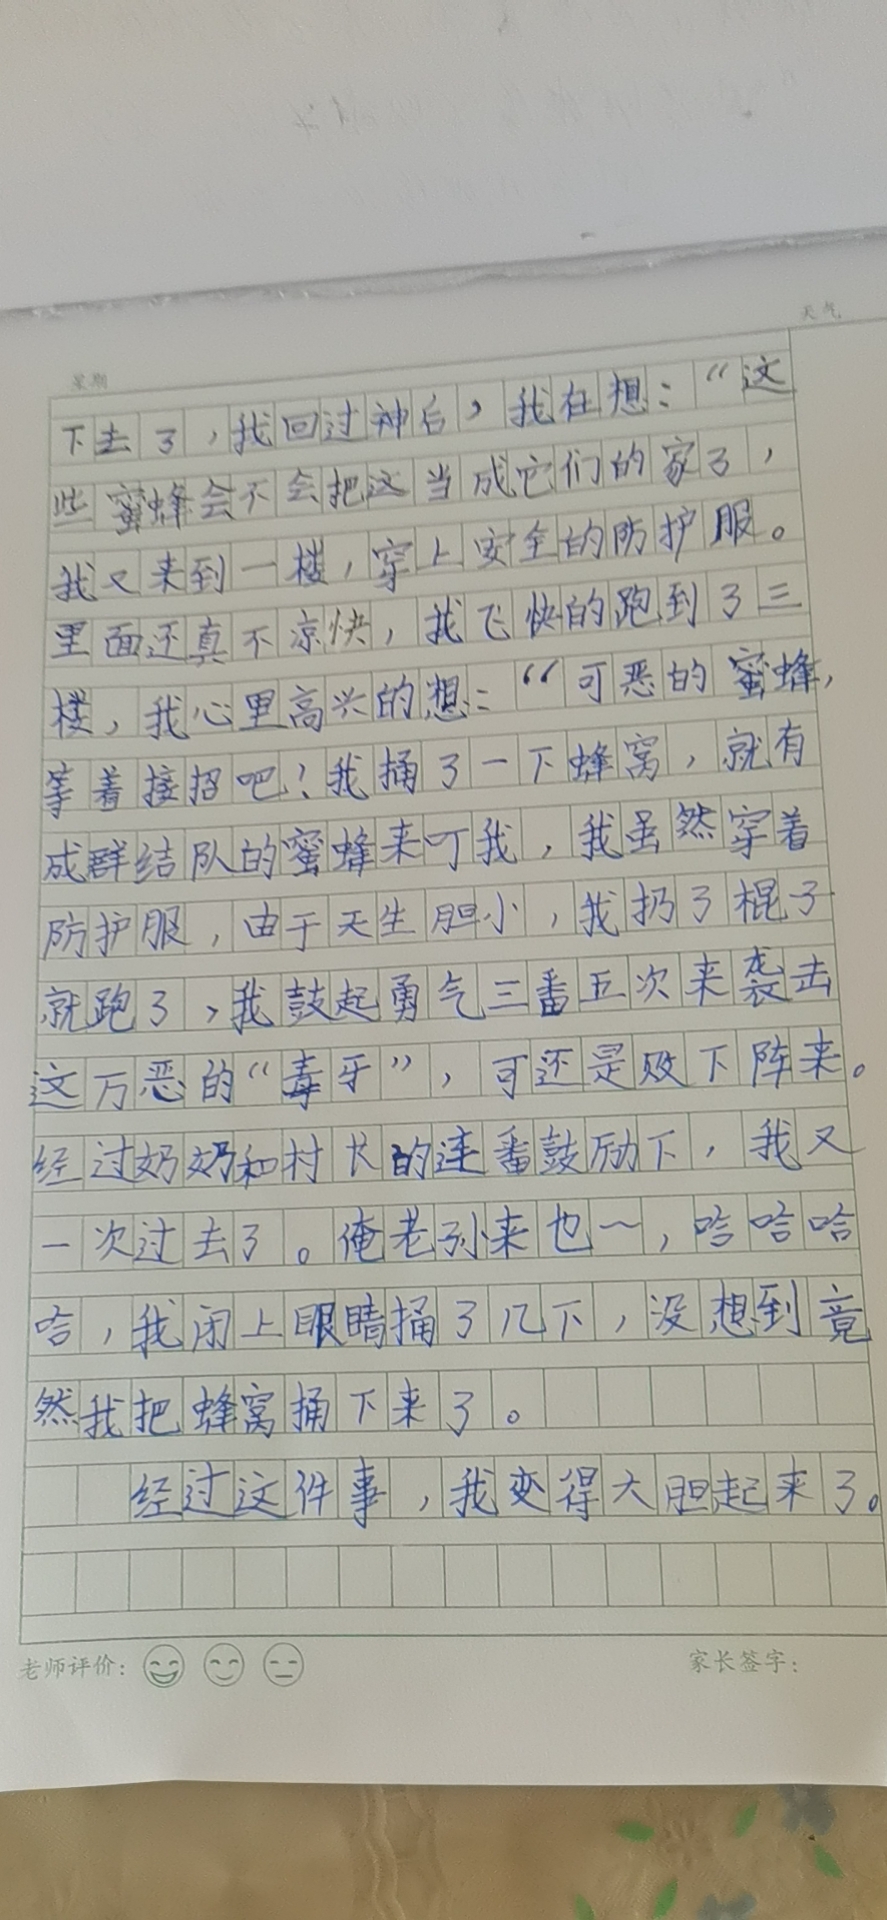 天气
星期
下去了，我回过神后，我在想：“这
些蜜蜂会不会把这当成它们的家了，
我又来到一楼，穿上安全的防护服。
里面还真不凉快，我飞快的跑到了三
楼，我心里高兴的想：“可恶的蜜蜂，
等着接招吧！我捅了一下蜂窝，就有
成群结队的蜜蜂来叮我，我虽然穿着
防护服，由于天生胆小，我扔了棍子
就跑了，我鼓起勇气三番五次来袭击
这万恶的“毒牙”，可还是败下阵来。
经过奶奶和村长的连番鼓励下，我又
一次过去了。俺老孙来也～，哈哈哈
哈，我闭上眼睛捅了几下，没想到竟
然我把蜂窝捅下来了。
经过这件事，我变得大胆起来了。
老师评价：
家长签字：